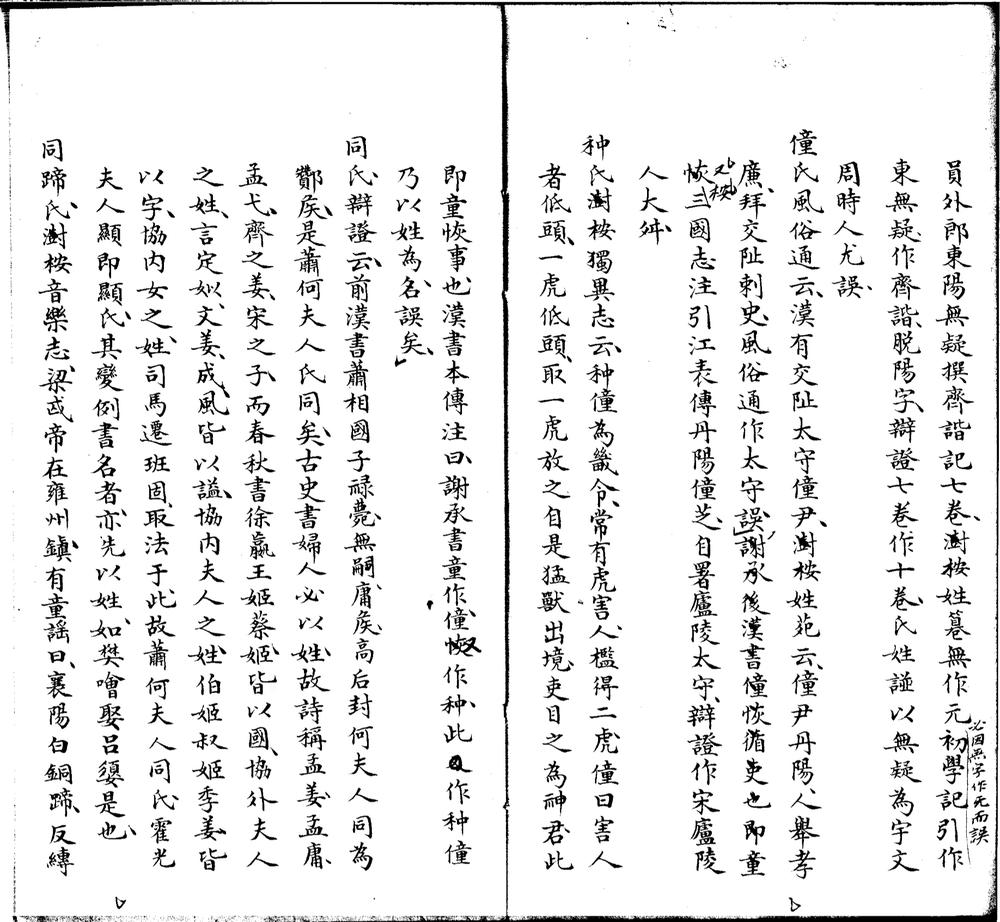 員外郎東陽無疑撰齊諧記七卷、澍桉姓䈂無作元初學記引作
必因無字作无而誤
東無疑作齊諧、脫陽字、辯證七卷作十卷氏姓諩以無疑為宇文
周時人尤誤
僮氏風俗通云、漢有交阯太守僮尹、澍桉姓苑云、僮尹丹陽人舉孝
廉、拜交阯刺史、風俗通作太守誤」謝承後漢書僮恢循吏也即童
恢又桉三國志注引江表傳丹陽僮芝、自署廬陵太守、辯證作宋廬陵
人大舛
种氏澍桉獨異志云、种僮為畿令、常有虎害人、檻得二虎僮曰害人
者低頭、一虎低頭、取一虎放之自是猛獸出境、吏目之為神君此
即童恢事也、漢書本傳注曰、謝承書童作僮恢又作种、此又作种僮
乃以姓為名、誤矣」
同氏、辯證云前漢書蕭相國子祿薨無嗣、庸矦高后封何夫人同為
酇矦、是蕭何夫人氏同矣、古史書婦人必以姓故詩稱孟姜、孟庸
孟弋、齊之姜、宋之子、而春秋書徐嬴王姬蔡姬皆以國、協外夫人
之姓、言定姒、文姜、成風皆以謚、協內夫人之姓、伯姬叔姬季姜皆
以字、協內女之姓、司馬遷班固、取法于此、故蕭何夫人同氏、霍光
夫人顯即顯氏、其變例書名者、亦先以姓、如樊噲娶呂䪺是也、
同蹄氏、澍桉音樂志、梁武帝在雍州鎮、有童謠曰、襄陽白銅蹄、反縛